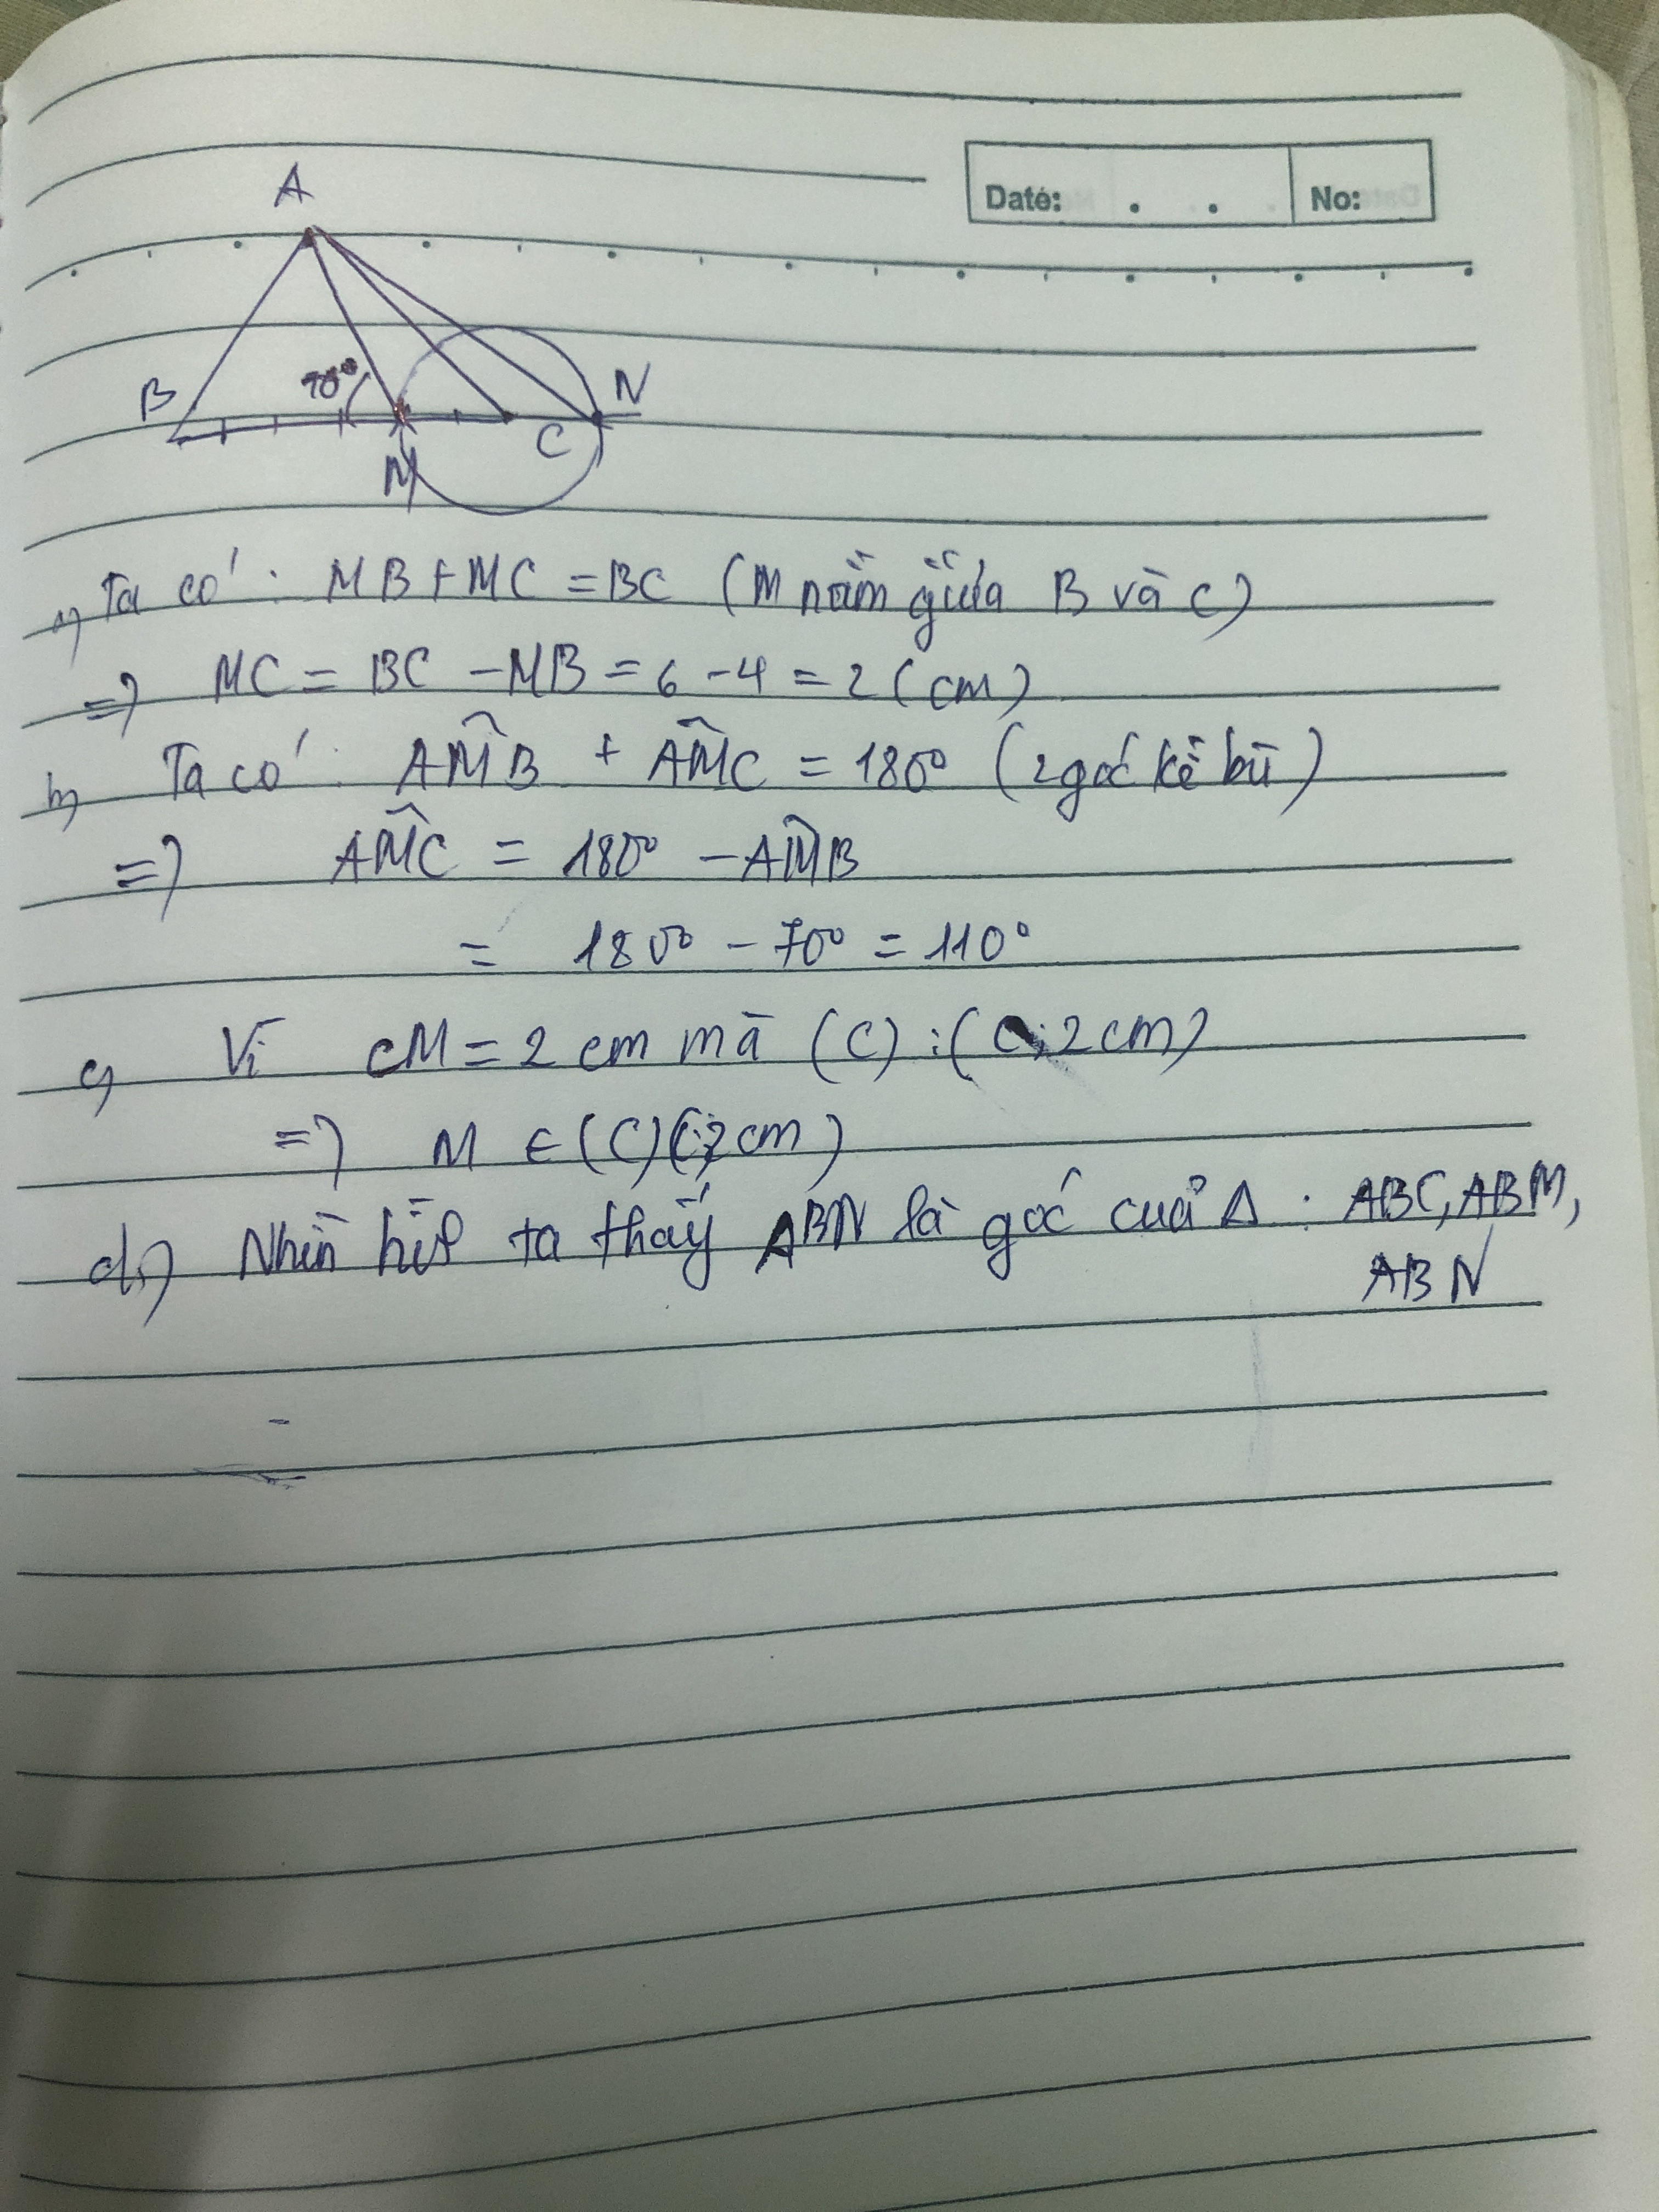 Date: No:
A
B 70° M C N
a, Ta có: MB + MC = BC (M nằm giữa B và C)
=> MC = BC - MB = 6 - 4 = 2 (cm)
b, Ta có: AM̂B + AM̂C = 180° (2 góc kề bù)
=> AM̂C = 180° - AM̂B
= 180° - 70° = 110°
c, Vì CM = 2 cm mà (C) : (C; 2 cm)
=> M ∈ (C)(C;2 cm)
d,) Nhìn hình ta thấy ABN là góc của Δ : ABC, ABM,
ABN